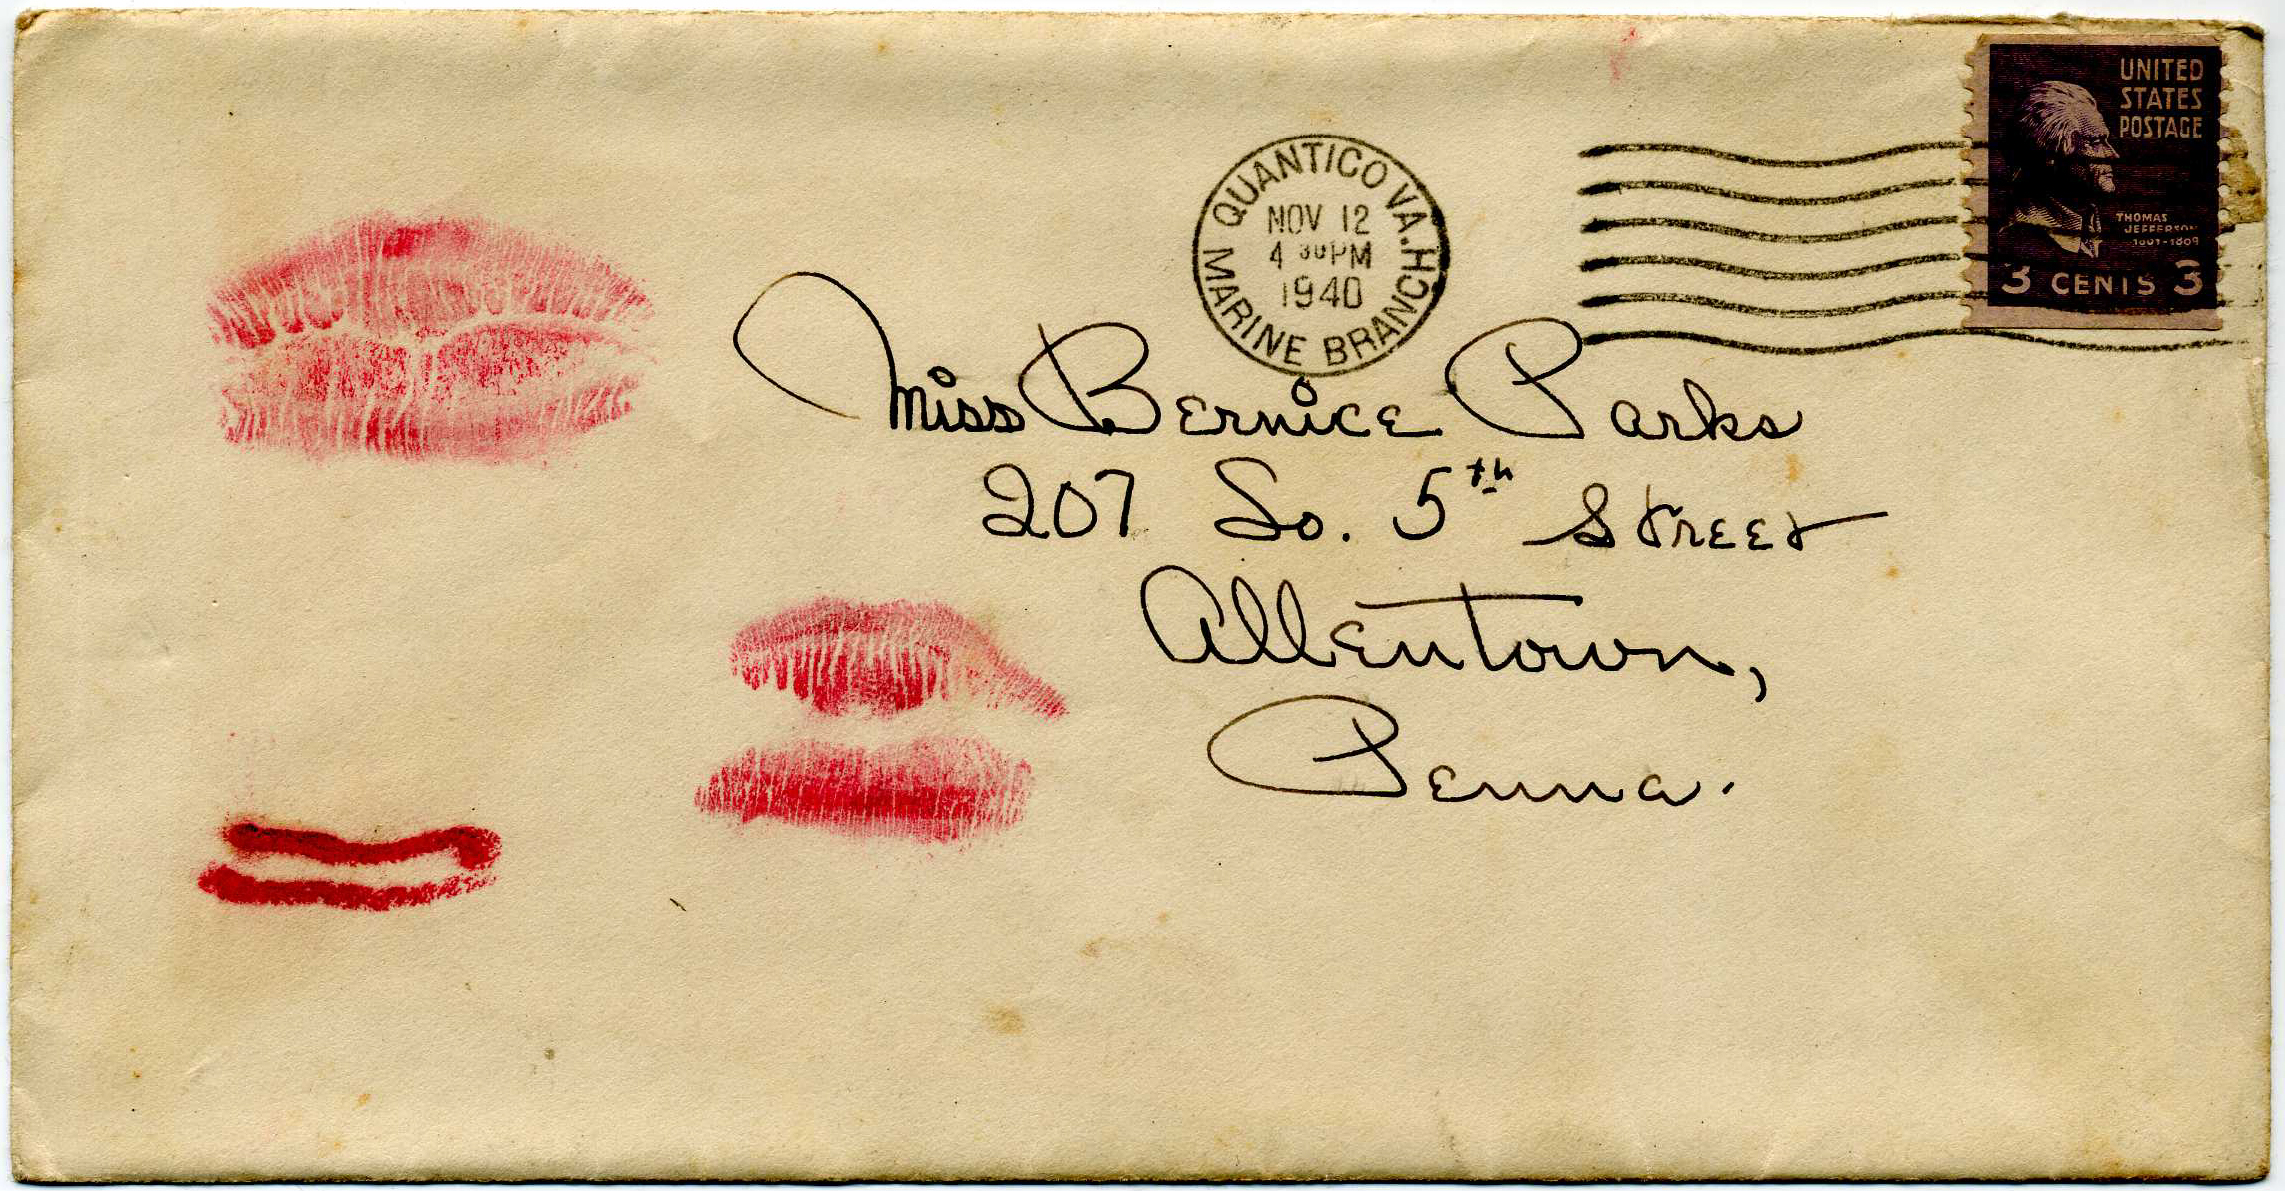 UNITED
STATES
POSTAGE
THOMAS
JEFFERSON
1801-1809
3 CENTS 3
QUANTICO VA.
MARINE BRANCH
NOV 12
4 30 PM
1940
Miss Bernice Parks
207 So. 5th Street
Allentown,
Penna.